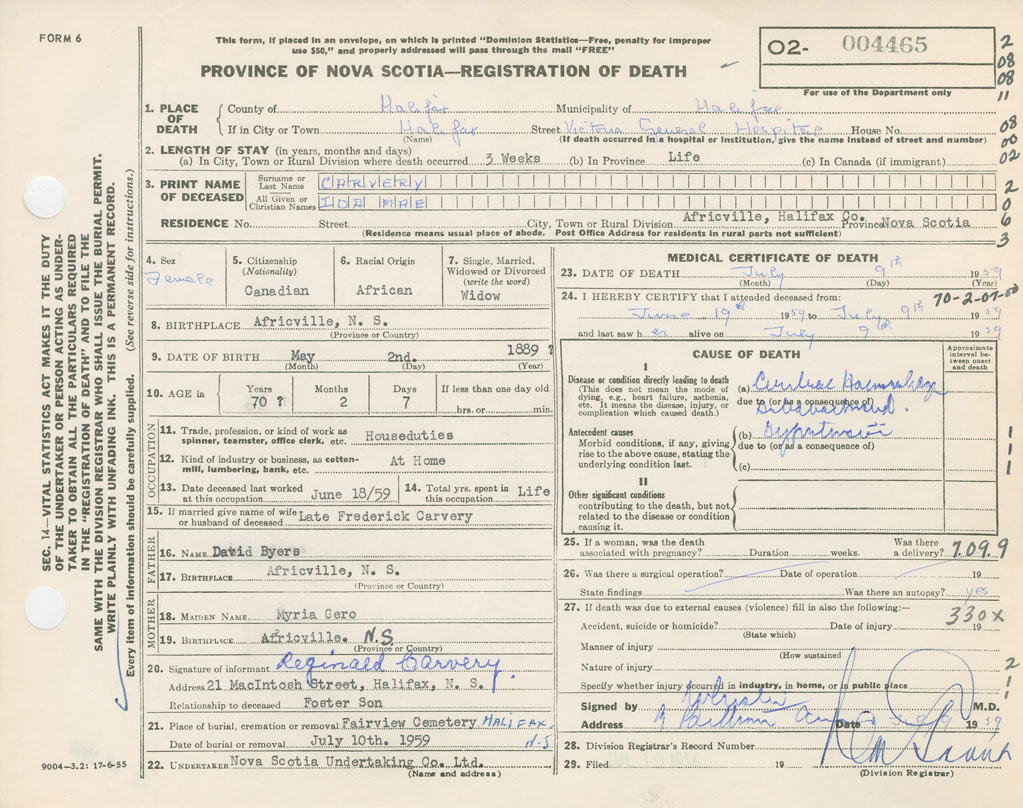 FORM 6
This form, if placed in an envelope, on which is printed "Dominion Statistics—Free, penalty for improper
use $50," and properly addressed will pass through the mail "FREE"
PROVINCE OF NOVA SCOTIA—REGISTRATION OF DEATH
O2- 004465
For use of the Department only
2
08
08
11
08
00
02
2
0
6
3
SEC. 14—VITAL STATISTICS ACT MAKES IT THE DUTY
OF THE UNDERTAKER OR PERSON ACTING AS UNDER-
TAKER TO OBTAIN ALL THE PARTICULARS REQUIRED
IN THE "REGISTRATION OF DEATH" AND TO FILE THE
SAME WITH THE DIVISION REGISTRAR WHO SHALL ISSUE THE BURIAL PERMIT.
WRITE PLAINLY WITH UNFADING INK. THIS IS A PERMANENT RECORD.
Every item of information should be carefully supplied. (See reverse side for instructions.)
1. PLACE OF DEATH
County of Halifax Municipality of Halifax
If in City or Town Halifax Street Victoria General Hospital House No.
(Name) (If death occurred in a hospital or institution, give the name instead of street and number)
2. LENGTH OF STAY (in years, months and days)
(a) In City, Town or Rural Division where death occurred 3 Weeks (b) In Province Life (c) In Canada (if immigrant)
3. PRINT NAME OF DECEASED
Surname or Last Name CARVERY
All Given or Christian Names IDA MAE
RESIDENCE No. Street City, Town or Rural Division Africville, Halifax Co. Province Nova Scotia
(Residence means usual place of abode. Post Office Address for residents in rural parts not sufficient)
4. Sex Female
5. Citizenship (Nationality) Canadian
6. Racial Origin African
7. Single, Married, Widowed or Divorced (write the word) Widow
8. BIRTHPLACE Africville, N. S.
(Province or Country)
9. DATE OF BIRTH May 2nd. 1889 ?
(Month) (Day) (Year)
10. AGE in Years 70 ? Months 2 Days 7 If less than one day old hrs. or min.
OCCUPATION
11. Trade, profession, or kind of work as spinner, teamster, office clerk, etc. Houseduties
12. Kind of industry or business, as cotton-mill, lumbering, bank, etc. At Home
13. Date deceased last worked at this occupation June 18/59 14. Total yrs. spent in this occupation Life
15. If married give name of wife or husband of deceased Late Frederick Carvery
FATHER
16. NAME David Byers
17. BIRTHPLACE Africville, N. S.
(Province or Country)
MOTHER
18. MAIDEN NAME Myria Gero
19. BIRTHPLACE Africville. N.S
(Province or Country)
20. Signature of informant Reginald Carvery.
Address 21 MacIntosh Street, Halifax, N. S.
Relationship to deceased Foster Son
21. Place of burial, cremation or removal Fairview Cemetery HALIFAX
Date of burial or removal July 10th. 1959 N.S
22. UNDERTAKER Nova Scotia Undertaking Co. Ltd.
(Name and address)
9004-3.2: 17-6-55
MEDICAL CERTIFICATE OF DEATH
23. DATE OF DEATH July 9th 1959
(Month) (Day) (Year)
24. I HEREBY CERTIFY that I attended deceased from: 70-2-07-00
June 19th 1959 to July 9th 1959
and last saw her alive on July 9th 1959
CAUSE OF DEATH
Approximate interval between onset and death
I
Disease or condition directly leading to death
(This does not mean the mode of dying, e.g., heart failure, asthenia, etc. It means the disease, injury, or complication which caused death.)
(a) Cerebral Haemorrhage
due to (or as a consequence of)
Antecedent causes
Morbid conditions, if any, giving rise to the above cause, stating the underlying condition last.
(b) Hypertension
due to (or as a consequence of)
(c)
1
1
1
II
Other significant conditions
contributing to the death, but not related to the disease or condition causing it.
25. If a woman, was the death associated with pregnancy? Duration weeks. Was there a delivery? 7.09.9
26. Was there a surgical operation? Date of operation 19
State findings Was there an autopsy? yes
27. If death was due to external causes (violence) fill in also the following:—
330X
Accident, suicide or homicide? Date of injury 19
(State which)
Manner of injury
(How sustained
Nature of injury
2
1
1
Specify whether injury occurred in industry, in home, or in public place
Signed by M.D.
Address Date 1959
28. Division Registrar's Record Number
29. Filed JUL 10 1959 19
(Division Registrar)